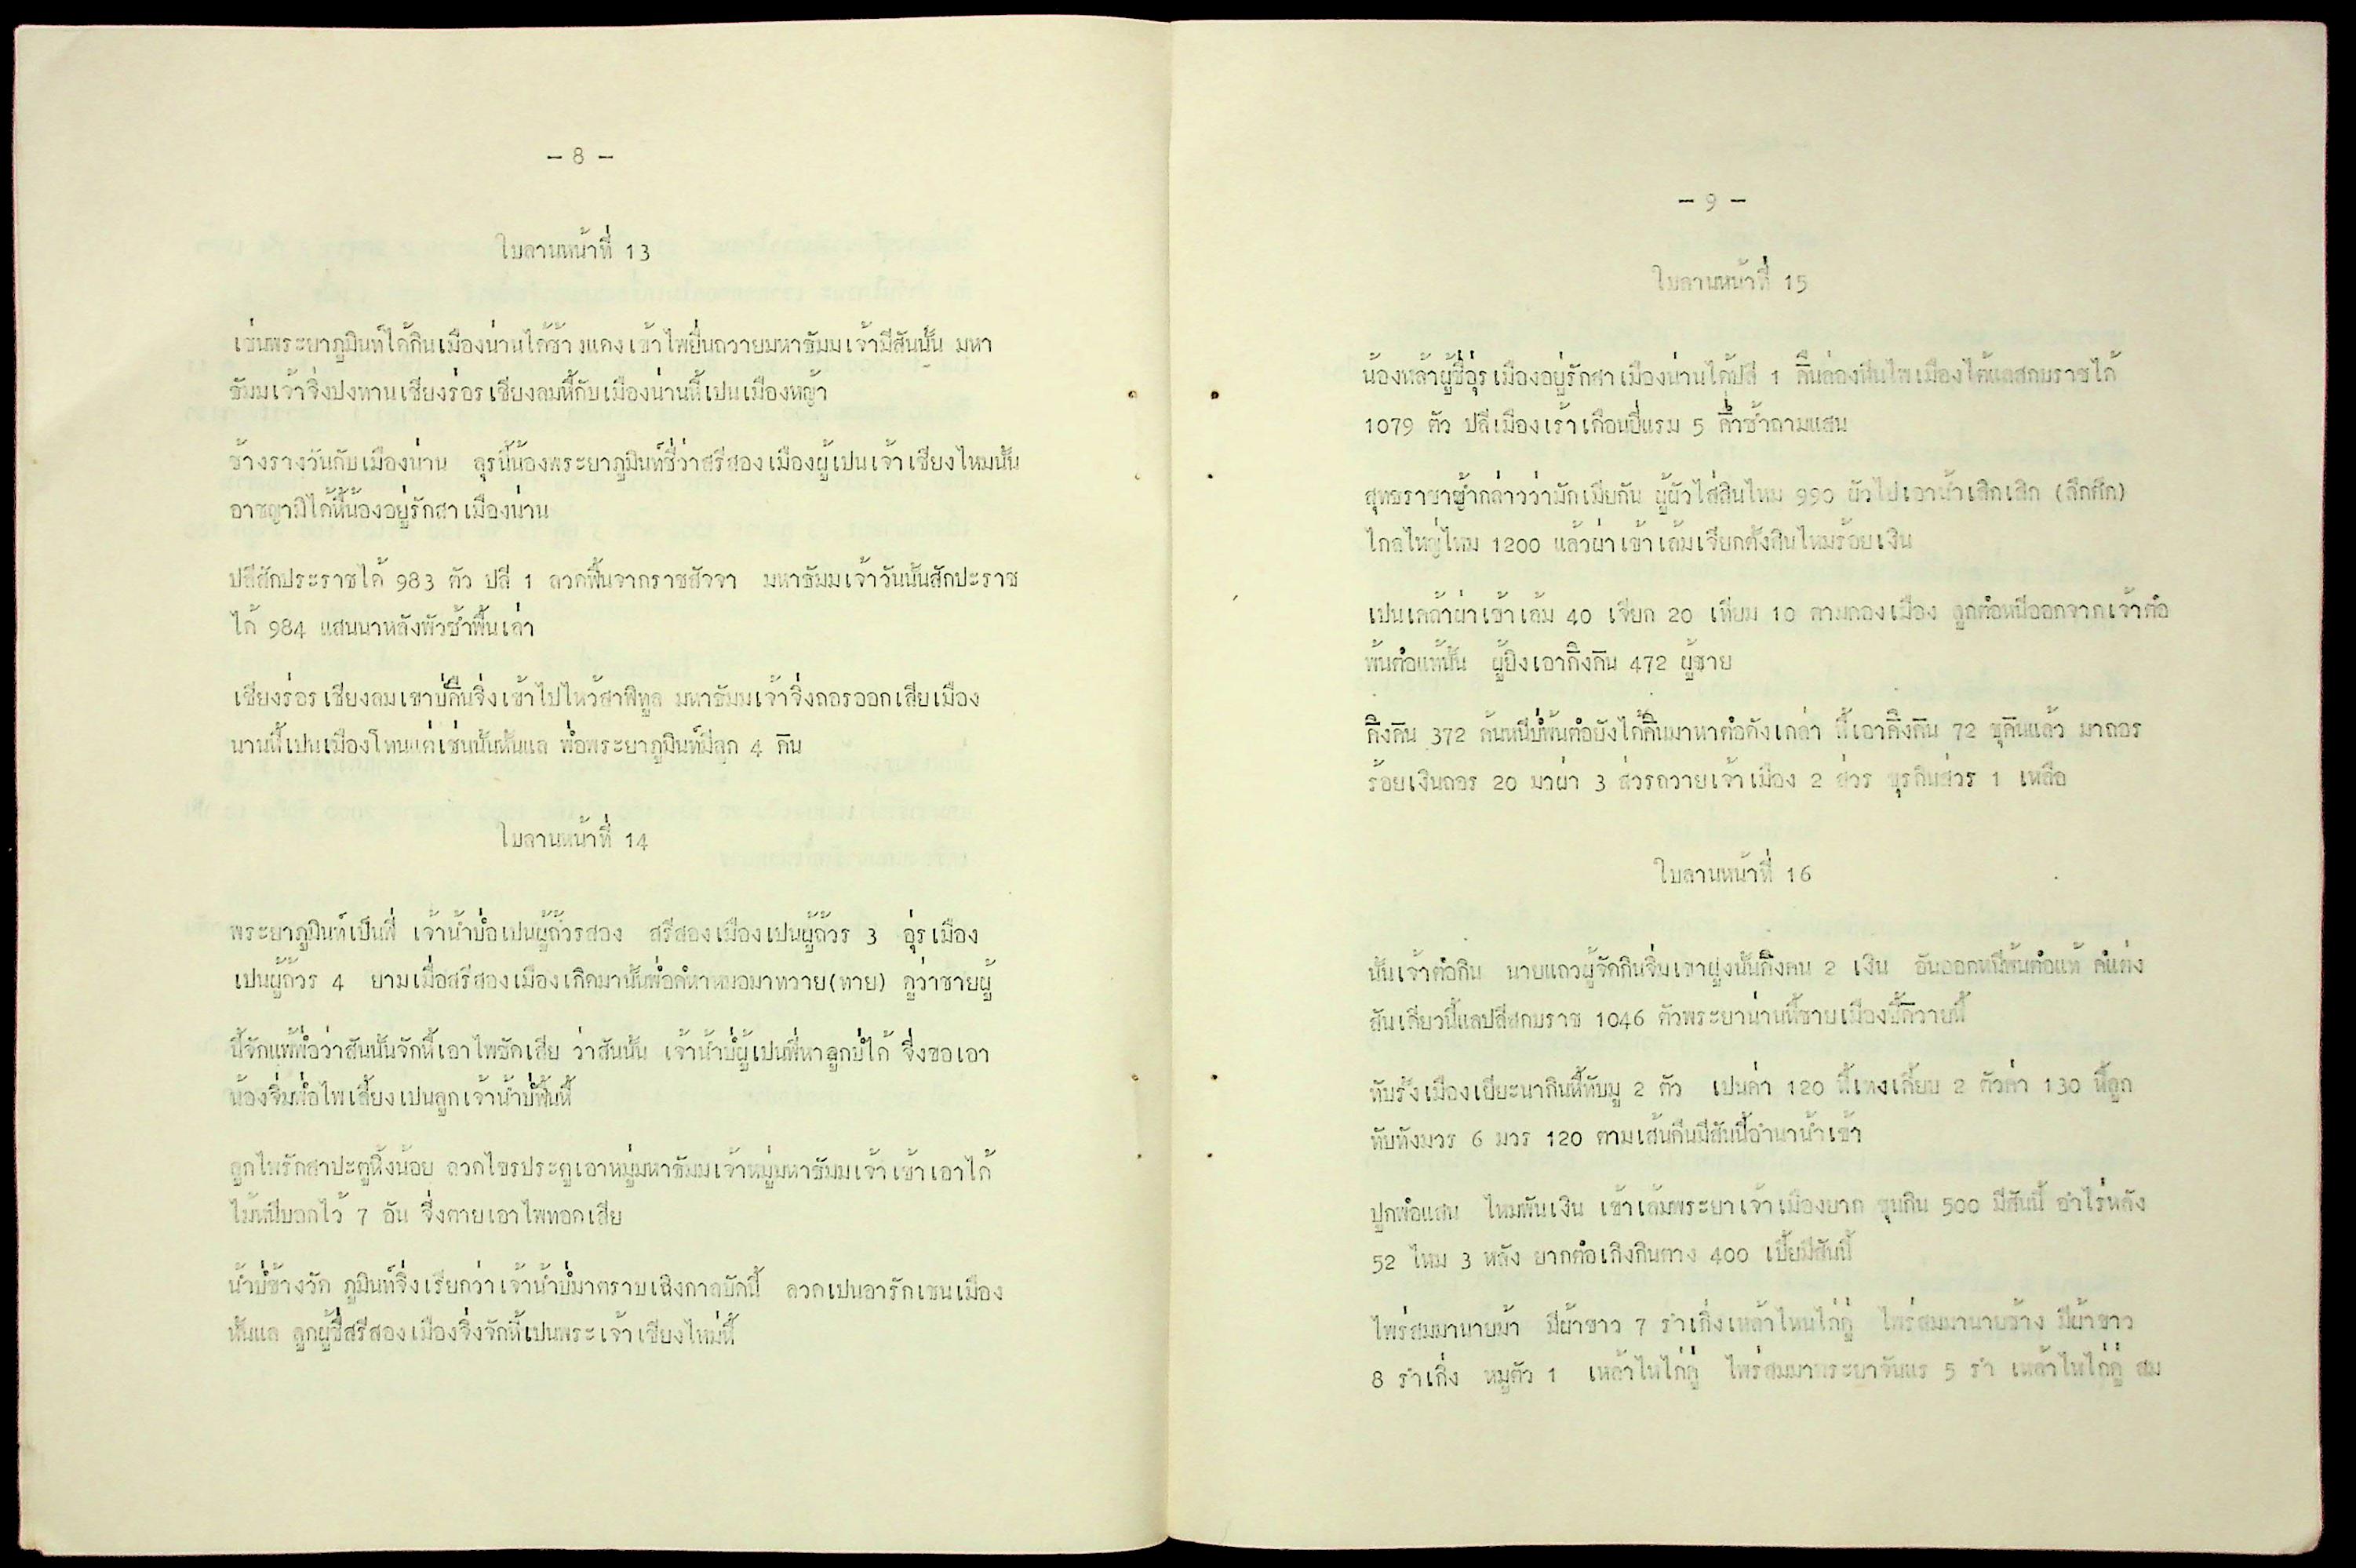 - 8 -
ใบลานหน้าที่ 13
เช่นพระยาภูมินท์ได้กินเมืองน่านได้ช้างแดงเข้าไพยื่นถวายมหาธัมมเจ้ามีสันนั้น มหา
ธัมมเจ้าจิ่งปงทานเชียงร่อรเชียงลมหื้กับเมืองน่านนี้เปนเมืองหญ้า
ช้างรางวันกับเมืองน่าน ลุรนี้น้องพระยาภูมินท์ชี่ว่าสรีสองเมืองผู้เปนเจ้าเชียงไหมนั้น
อาชญามิได้หื้น้องอยู่รักสาเมืองน่าน
ปลีสักประะราชได้ 983 ตัว ปลี 1 ลวดฟื้นจากราชสัจจา มหาธัมมเจ้าวันนั้นสักปะราช
ได้ 984 แสนนาหลังพัวซ้ำฟื้นเล่า
เชียงร่อรเชียงลมเขาบ่คืนจิ่งเข้าไปไหว้สาพิทูล มหาธัมมเจ้าจิ่งถอรออกเสียเมือง
นานหื้เปนเมืองโทนแต่เช่นนั้นหั้นแล พ่อพระยาภูมินท์มีลูก 4 คืน
ใบลานหน้าที่ 14
พระยาภูมินท์เป็นพี่ เจ้าน้ำบ่อเปนผู้ถ้วรสอง สรีสองเมืองเปนผู้ถ้วร 3 อุ่รเมือง
เปนผู้ถ้วร 4 ยามเมื่อสรีสองเมืองเกิดมานั้นพ่อค่หาหมอมาทวาย(ทาย) ดูว่าชายผู้
นี้จักแพ้พ่อว่าสันนั้นจักหื้เอาไพซัดเสีย ว่าสันนั้น เจ้าน้ำบ่ผู้เปนพี่หาลูกบ่ได้ จิ่งขอเอา
น้องจิ่มพ่อไพเลี้ยงเปนลูกเจ้าน้ำบ่ฟื้นหื้
ลูกไพรักสาปะตูหิ้งน้อย ลวดไขรประตูเอาหมู่มหาธัมมเจ้าหมู่มหาธัมมเจ้าเข้าเอาได้
ไม้หนีบอกไว้ 7 อัน จิ่งตายเอาไพทอดเสีย
น้ำบ่ช้างวัด ภูมินท์จิ่งเรียกว่าเจ้าน้ำบ่มาตราบเถิงกาลบัดนี้ ลวดเปนอารักเชนเมือง
หั้นแล ลูกผู้ชี่สรีสองเมืองจิ่งจักหื้เปนพระเจ้าเชียงไหม่หื้
- 9 -
ใบลานหน้าที่ 15
น้องหล้าผู้ชี่อุ่รเมืองอยู่รักสาเมืองน่านได้ปลี 1 คืนล่องหนีไพเมืองไต้แลสกบราชได้
1079 ตัว ปลีเมืองเร้าเดือนยี่แรม 5 ค่ำซ้ำถามแสน
สุทธราชาซ้ำกล่าวว่ามักเมียกัน ผู้ผัวไส่สินไหม 990 ผัวไปเอาน้ำเสิกเสิก (ลึกศึก)
ไกลไหญ่ไหม 1200 แล้วผ่าเข้าเล้มเจียกตั้งสินไหมร้อยเงิน
เปนเคล้าผ่าเข้าเล้ม 40 เจียก 20 เทียม 10 ตามคองเมือง ลูกต่อหนีออกจากเจ้าต่อ
พ้นต่อแท้นั้น ผู้ยิงเอาคิ่งคืน 472 ผู้ชาย
คิ่งคืน 372 คันหนีบ่พ้นต่อยังได้คืนมาหาต่อดังเกล่า หื้เอาคิ่งคืน 72 ชุคืนแล้ว มาถอร
ร้อยเงินถอร 20 มาผ่า 3 ส่วรถวายเจ้าเมือง 2 ส่วร ขุรกินส่วร 1 เหลือ
ใบลานหน้าที่ 16
นั้นเจ้าต่อกิน นายแถวผู้จัดกินจิ่มเขาฝูงนั้นคิ่งคน 2 เงิน อันออกหนีพ้นต่อแท้ ค่แต่ง
สันเดียวนี้แลปลีสกบราช 1046 ตัวพระยาน่านหื้ชายเมืองบี้ถวายหื้
ทับรั้งเมืองเยียะนากินหื้ทับมู 2 ตัว เปนค่า 120 หื้เทงเถี้ยบ 2 ตัวค่า 130 หื้ลูก
ทับทังมวร 6 มวร 120 ตามเส้นคืนมีสันนี้อำนาน้ำเข้า
ปูกพ่อแสน ไหมพันเงิน เข้าเล้มพระยาเจ้าเมืองยาด ขุนกิน 500 มีสันนี้ อำไร่หลัง
52 ไหม 3 หลัง ยากต่อเถิงกินตาง 400 เบี้ยมีสันนี้
ไพร่สมมานายม้า มีผ้าขาว 7 รำเกิ่งเหล้าไหนไก่คู่ ไพร่สมมานายช้าง มีผ้าขาว
8 รำเกิ่ง หมูตัว 1 เหล้าไหไก่คู่ ไพร่สมมาพระยาจันแร 5 รำ เหล้าไหไก่คู่ สม